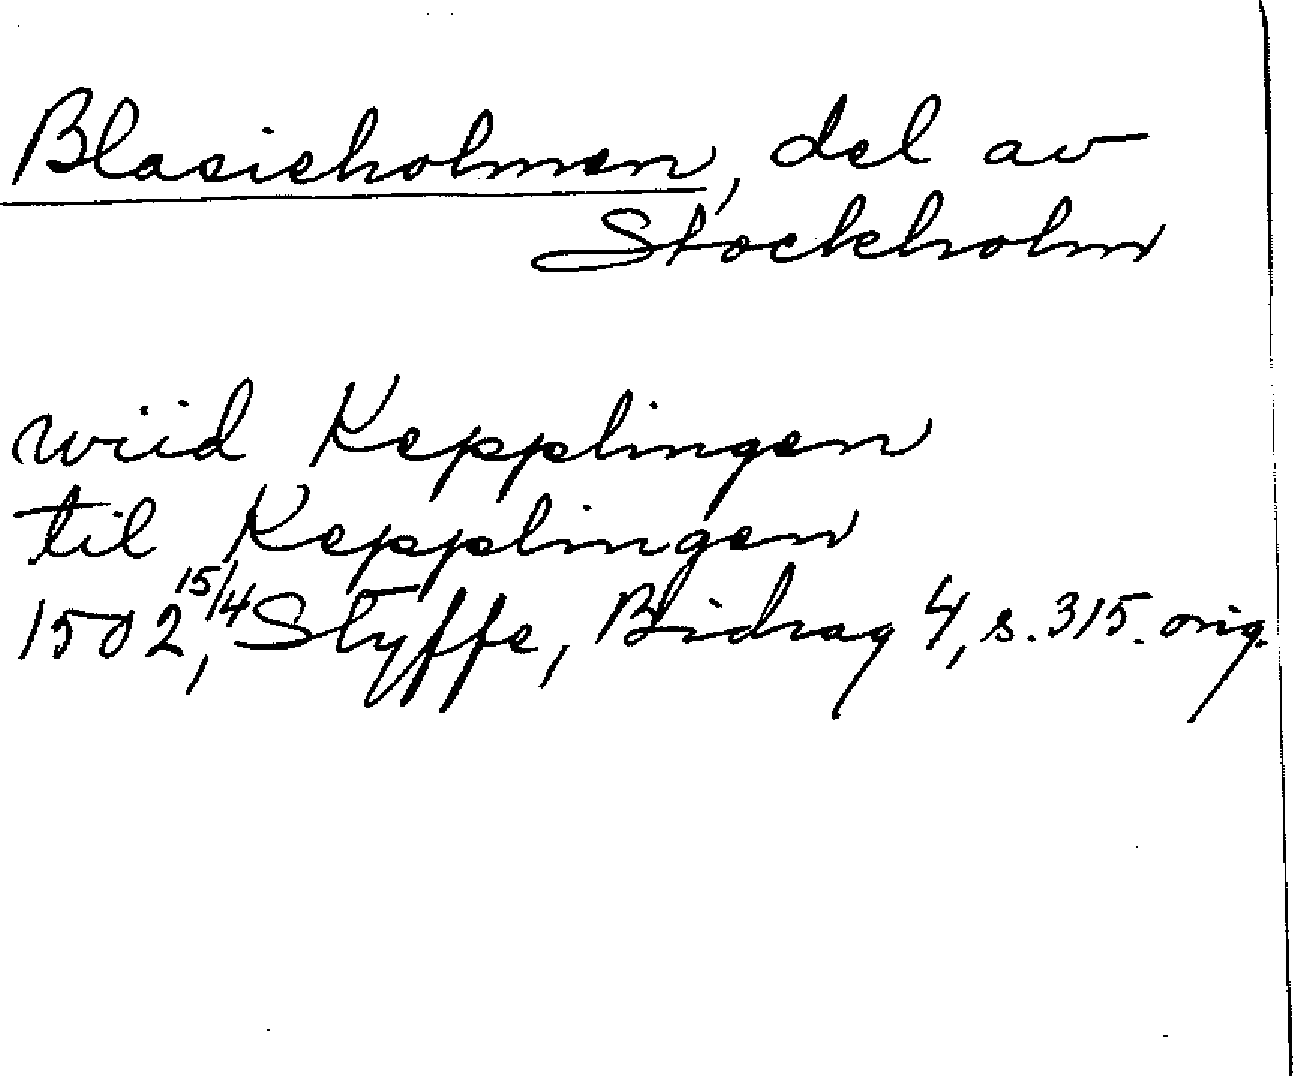 Blasieholmen, del av
Stockholm
wiid Kepplingen
til Kepplingen
1502 15/4, Styffe, Bidrag 4, s. 315. orig.